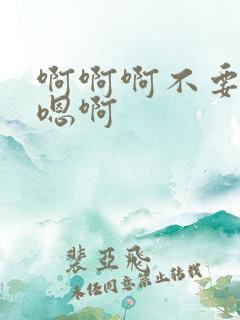 啊啊啊不要
嗯啊
裴亚飞
未经同意禁止转载